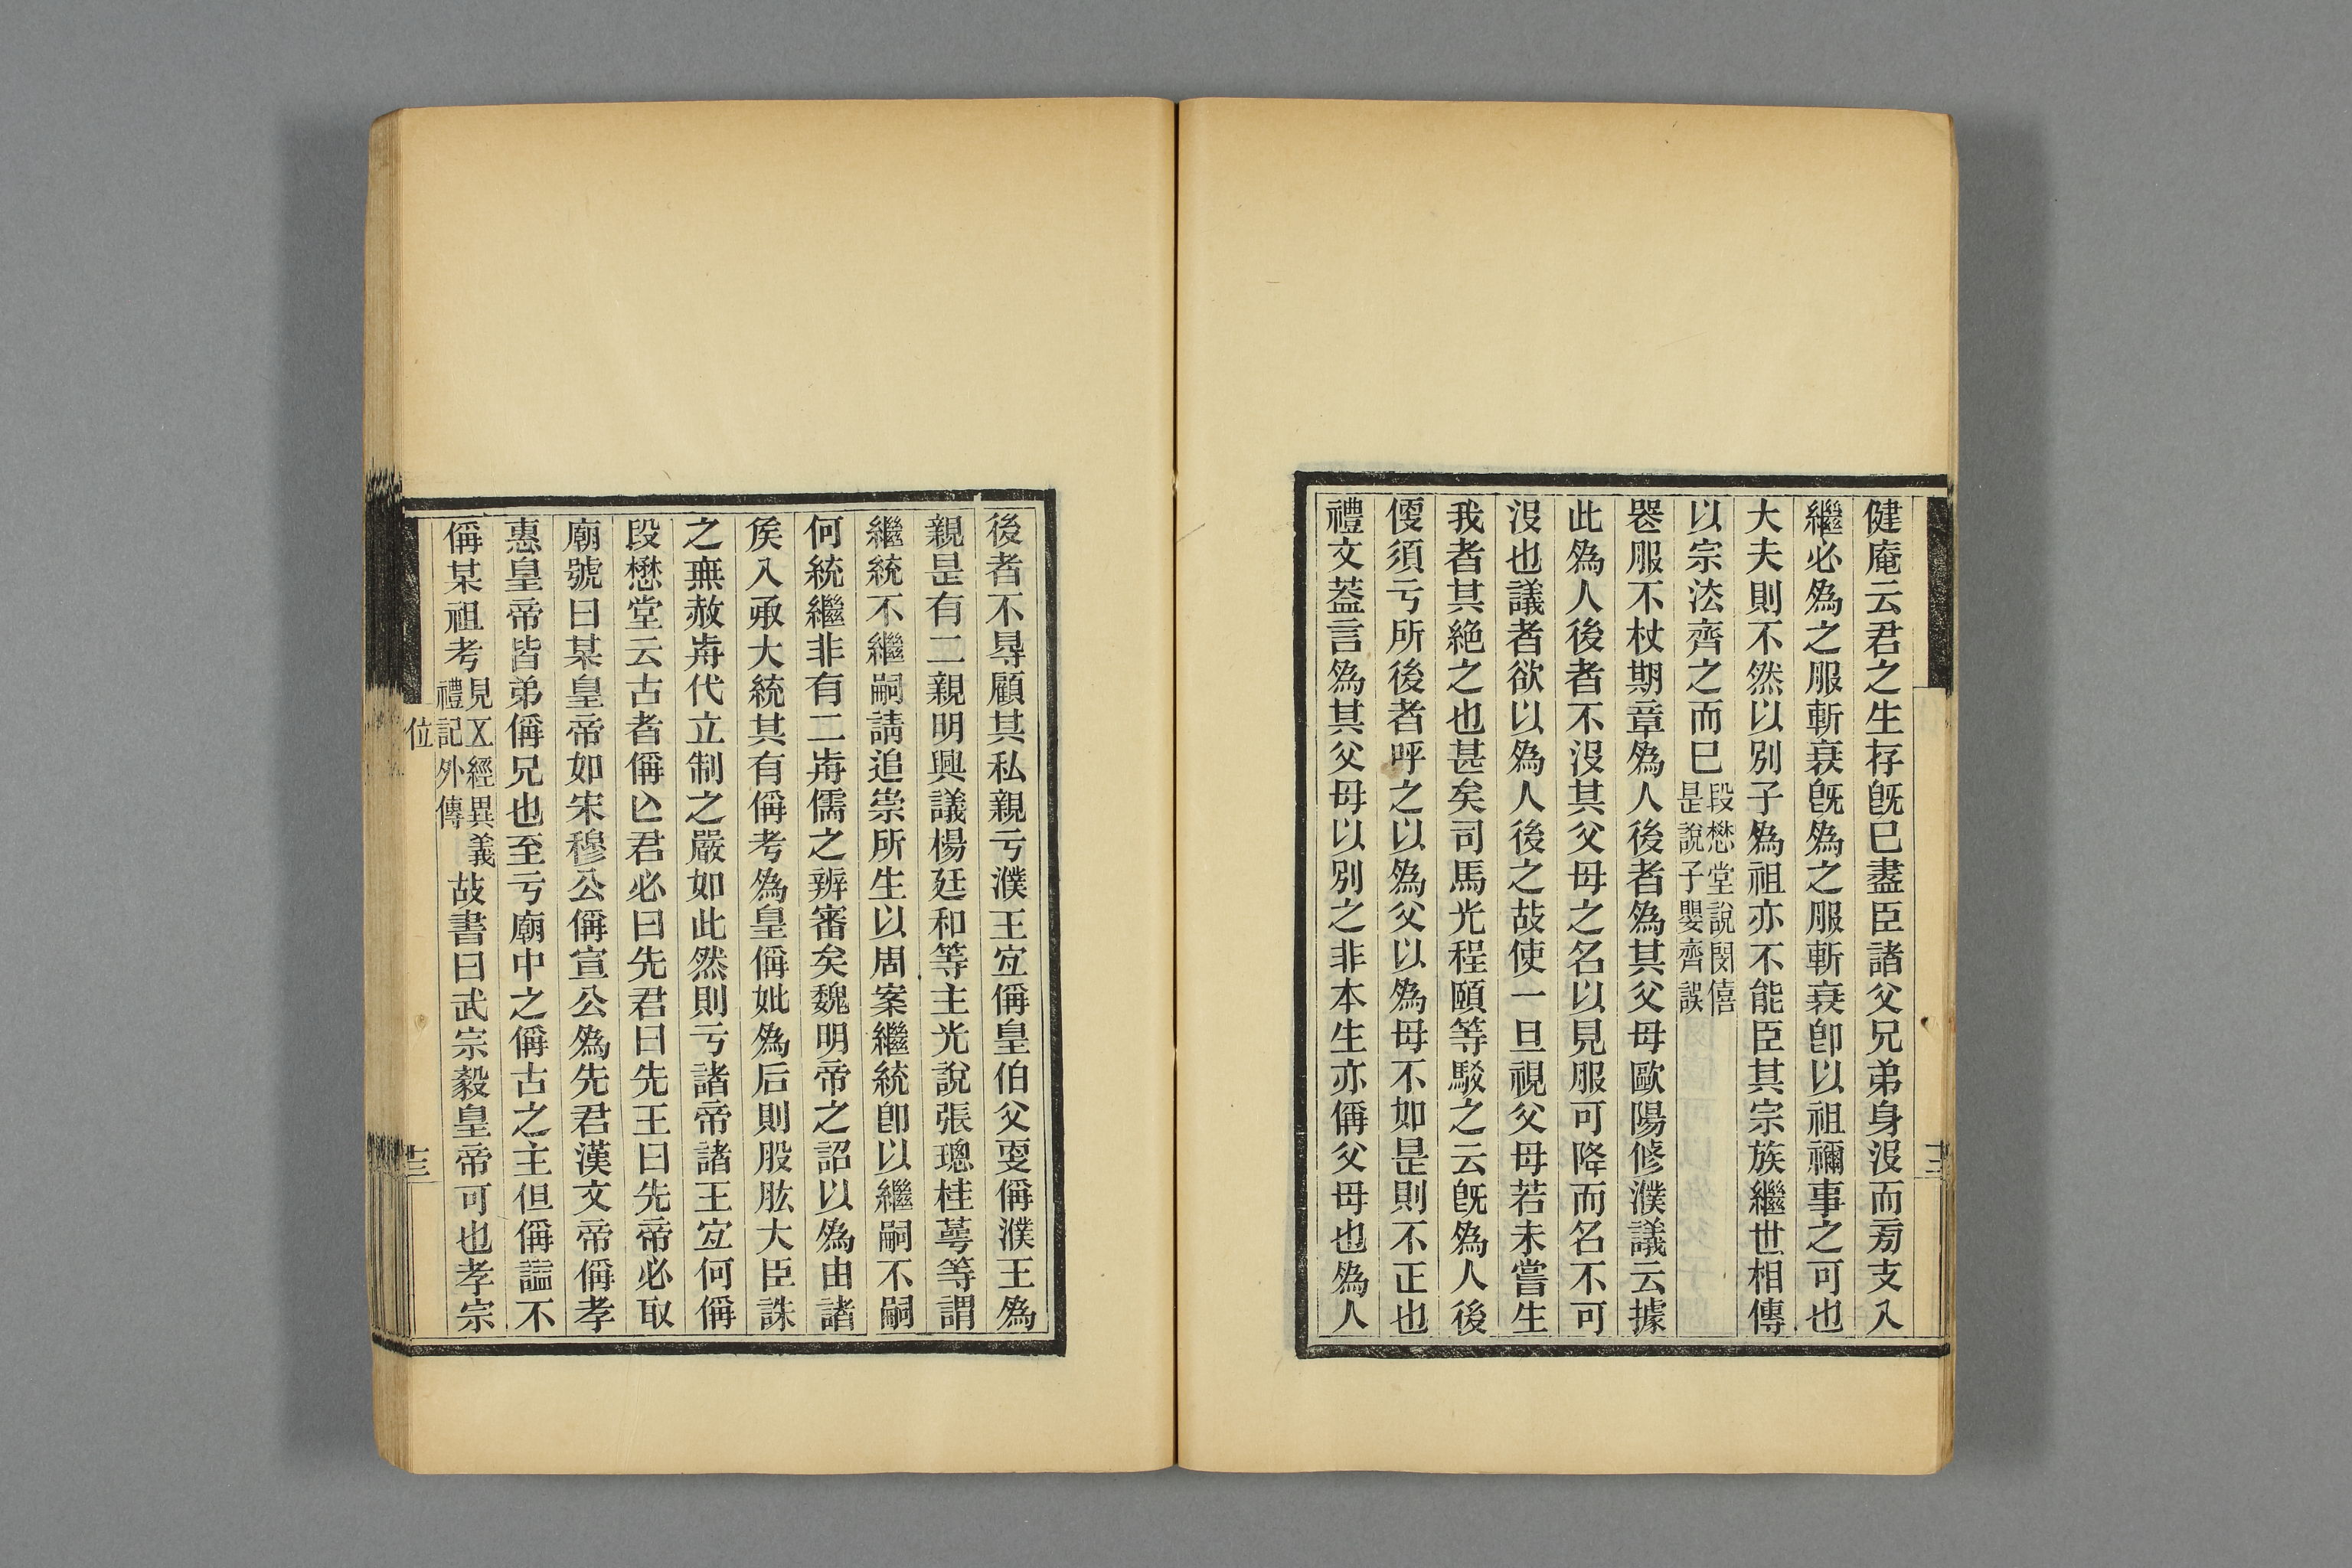 健庵云君之生存旣巳盡臣諸父兄弟身沒而㫄支入
繼必爲之服斬衰旣爲之服斬衰卽以祖禰事之可也
大夫則不然以別子爲祖亦不能臣其宗族繼世相傳
以宗法齊之而巳段懋堂說閔僖是說子嬰齊誤
器服不杖期章爲人後者爲其父母歐陽修濮議云據
此爲人後者不沒其父母之名以見服可降而名不可
沒也議者欲以爲人後之故使一旦視父母若未嘗生
我者其絶之也甚矣司馬光程頤等駁之云旣爲人後
便須亏所後者呼之以爲父以爲母不如是則不正也
禮文葢言爲其父母以別之非本生亦偁父母也爲人
十二
後者不㝵顧其私親亏濮王宐偁皇伯父㪅偁濮王爲
親是有二親明興議楊廷和等主光說張璁桂萼等謂
繼統不繼嗣請追崇所生以周案繼統卽以繼嗣不嗣
何統繼非有二歬儒之辨審矣魏明帝之詔以爲由諸
矦入承大統其有偁考爲皇偁妣爲后則股肱大臣誅
之無赦歬代立制之嚴如此然則亏諸帝諸王宐何偁
段懋堂云古者偁亾君必曰先君曰先王曰先帝必取
廟號曰某皇帝如宋穆公偁宣公爲先君漢文帝偁孝
惠皇帝皆弟偁兄也至亏廟中之偁古之主但偁諡不
偁某祖考見五經異義禮記外傳故書曰武宗毅皇帝可也孝宗
位
十三